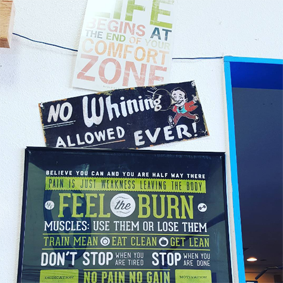 LIFE
BEGINS AT
THE END OF YOUR
COMFORT
ZONE
NO Whining
ALLOWED EVER!
BELIEVE YOU CAN AND YOU ARE HALF WAY THERE
PAIN IS JUST WEAKNESS LEAVING THE BODY
FEEL the BURN
MUSCLES: USE THEM OR LOSE THEM
TRAIN MEAN EAT CLEAN GET LEAN
DON'T STOP WHEN YOU ARE TIRED STOP WHEN YOU ARE DONE
NO PAIN NO GAIN